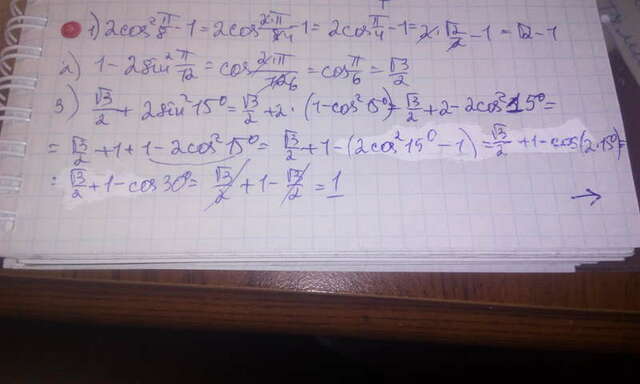 1) 2cos² π/8 - 1 = 2cos 2·π/84 - 1 = 2cos π/4 - 1 = 2·√2/2 - 1 = √2 - 1
2) 1 - 2sin² π/12 = cos 2·π/126 = cos π/6 = √3/2
3) √3/2 + 2sin²15° = √3/2 + 2·(1 - cos²15°) = √3/2 + 2 - 2cos²15° =
= √3/2 + 1 + 1 - 2cos²15° = √3/2 + 1 - (2cos²15° - 1) = √3/2 + 1 - cos(2·15°) =
= √3/2 + 1 - cos30° = √3/2 + 1 - √3/2 = 1
→